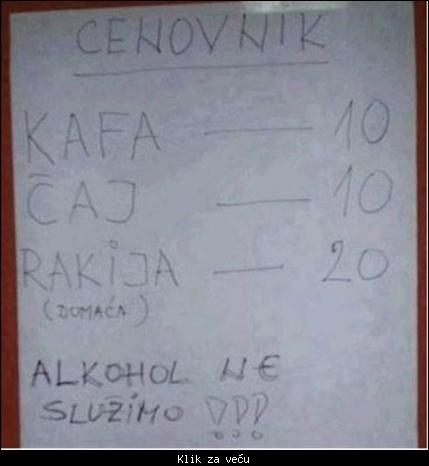 CENOVNIK
KAFA — 10
ČAJ — 10
RAKIJA — 20
(DOMAĆA)
ALKOHOL NE
SLUŽIMO !!!
Klik za veću